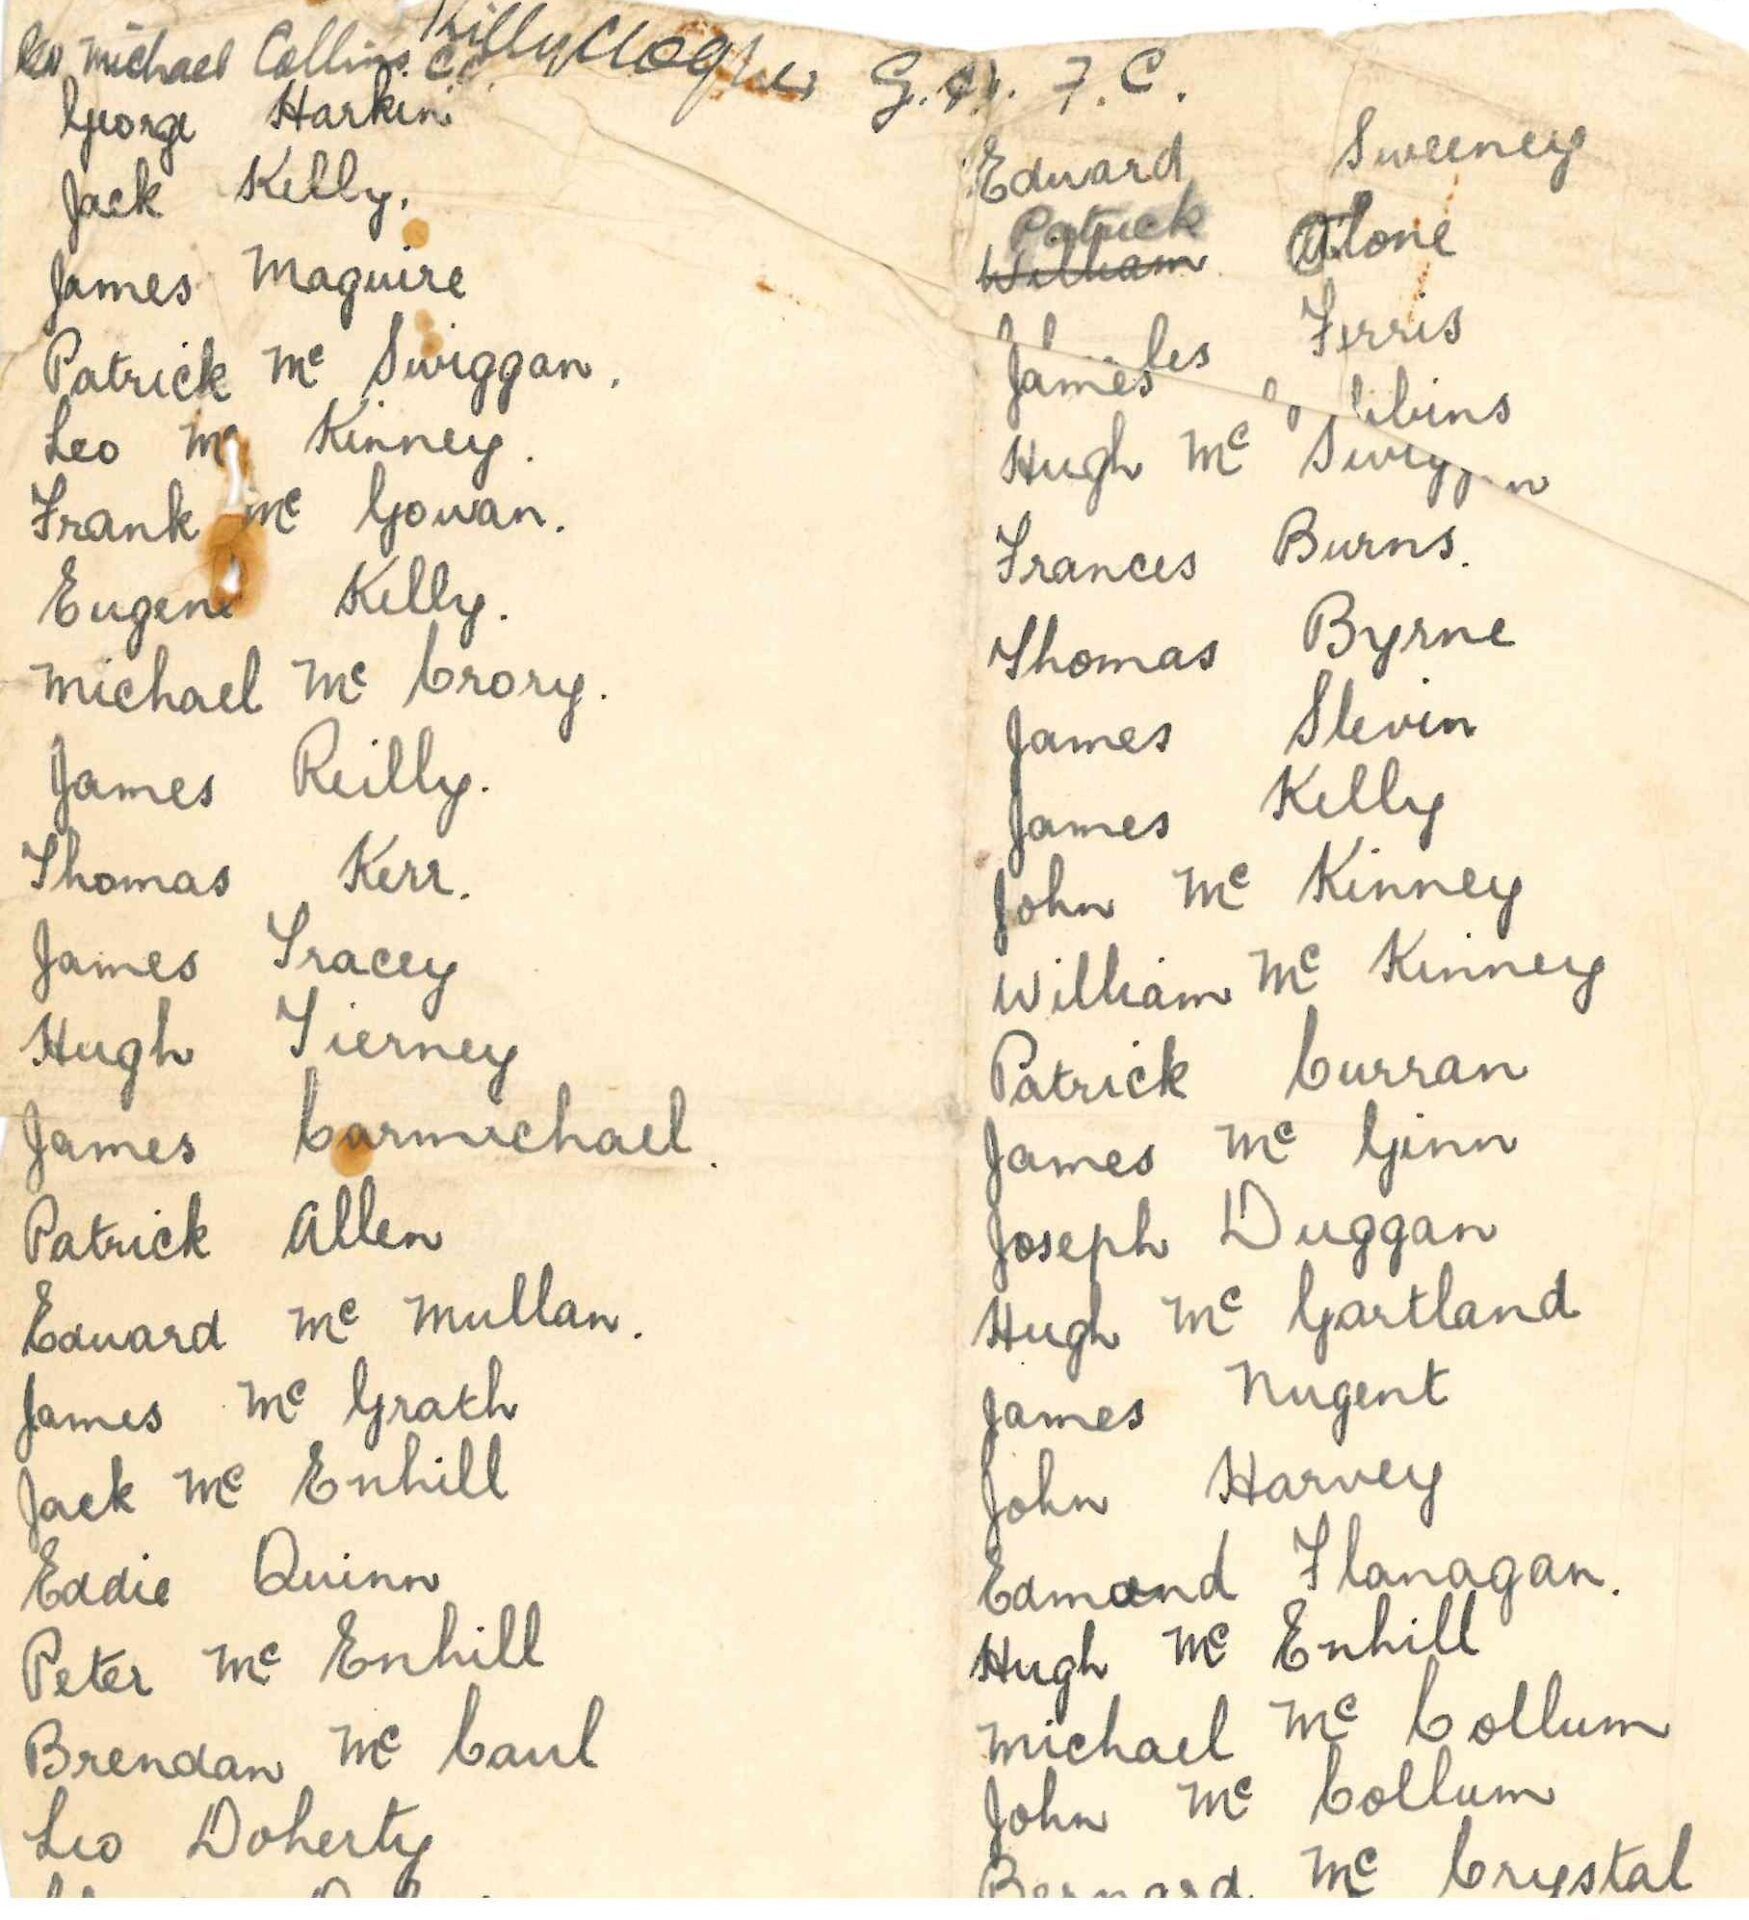 Michael Collins. C.C. Killyclogher G.A. F.C.
George Harkin
Jack Kelly.
James Maguire
Patrick Mc Swiggan.
Leo Mc Kinney.
Frank Mc Gowan.
Eugene Kelly.
Michael Mc Crory.
James Reilly.
Thomas Kerr.
James Tracey
Hugh Tierney
James Carmichael.
Patrick Allen
Edward Mc Mullan.
James Mc Grath
Jack Mc Enhill
Eddie Quinn
Peter Mc Enhill
Brendan Mc Caul
Leo Doherty
Edward Sweeney
Patrick
William
Ferris
James
Hugh Mc Swiggan
Frances Burns.
Thomas Byrne
James Slevin
James Kelly
John Mc Kinney
William Mc Kinney
Patrick Curran
James Mc Ginn
Joseph Duggan
Hugh Mc Gartland
James Nugent
John Harvey
Edmond Flanagan.
Hugh Mc Enhill
Michael Mc Collum
John Mc Collum
Bernard Mc Crystal